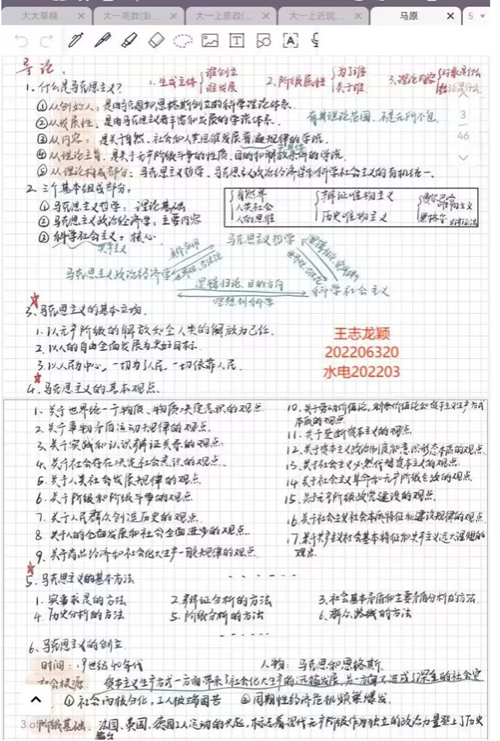 大大草稿
大一高数(影...
大一上思政(...
大一上近现...
马原
5
导论.
1. 什么是马克思主义? 1. 生成主体 谁创立 谁发展 2. 阶级属性 为了谁 关于谁 3. 理论内容 对象是什么
① 从创始人:是由马克思和恩格斯创立的科学理论体系.
② 从发展性:是由马克思主义者丰富和发展的学说体系. 有其理论范围,不是无所不包
③ 从内容:是关于自然、社会和人类思维发展普遍规律的学说.
④ 从理论主旨:是关于无产阶级斗争的性质、目的和解放条件的学说
⑤ 从理论构成部分:马克思主义哲学、马克思主义政治经济学和科学社会主义的有机统一.
3
46
2. 三个基本组成部分:
① 马克思主义哲学:理论基础
② 马克思主义政治经济学:主要内容
③ 科学社会主义:核心
自然界
人类社会
人的思维
辩证唯物主义
历史唯物主义
马克思主义哲学
马克思主义政治经济学
科学社会主义
3. 马克思主义的基本立场.
1. 以无产阶级的解放和全人类的解放为己任.
2. 以人的自由全面发展为美好目标.
3. 以人民为中心,一切为了人民,一切依靠人民.
王志龙颖
202206320
水电202203
4. 马克思主义的基本观点.
1. 关于世界统一于物质、物质决定意识的观点
2. 关于事物矛盾运动规律的观点.
3. 关于实践和认识辩证关系的观点.
4. 关于社会存在决定社会意识的观点.
5. 关于人类社会发展规律的观点.
6. 关于阶级和阶级斗争的观点.
7. 关于人民群众创造历史的观点.
8. 关于人的全面发展和社会全面进步的观点.
9. 关于商品经济和社会化大生产一般规律的观点.
10. 关于劳动价值论、剩余价值论和资本主义生产方式
本质的观点
11. 关于垄断资本主义的观点.
12. 关于资本主义政治制度和意识形态本质的观点
13. 关于社会主义必然代替资本主义的观点.
14. 关于社会主义革命和无产阶级专政的观点
15. 关于无产阶级政党建设的观点.
16. 关于社会主义社会本质特征和建设规律的观点
17. 关于共产主义社会基本特征和共产主义远大理想的
观点.
5. 马克思主义的基本方法
1. 实事求是的方法 2. 辩证分析的方法 3. 社会基本矛盾和主要矛盾分析的方法.
4. 历史分析的方法 5. 阶级分析的方法 6. 群众路线的方法
6. 马克思主义的创立
时间:19世纪40年代 人物:马克思和恩格斯.
社会根源: 资本主义生产方式一方面带来了社会化大生产的迅猛发展,另一方面又造成了深重的社会灾
① 社会两极分化,工人极端困苦 ② 周期性经济危机频繁爆发.
阶级基础: 法国、英国、德国工人运动的兴起,标志着现代无产阶级作为独立的政治力量登上了历史
舞台